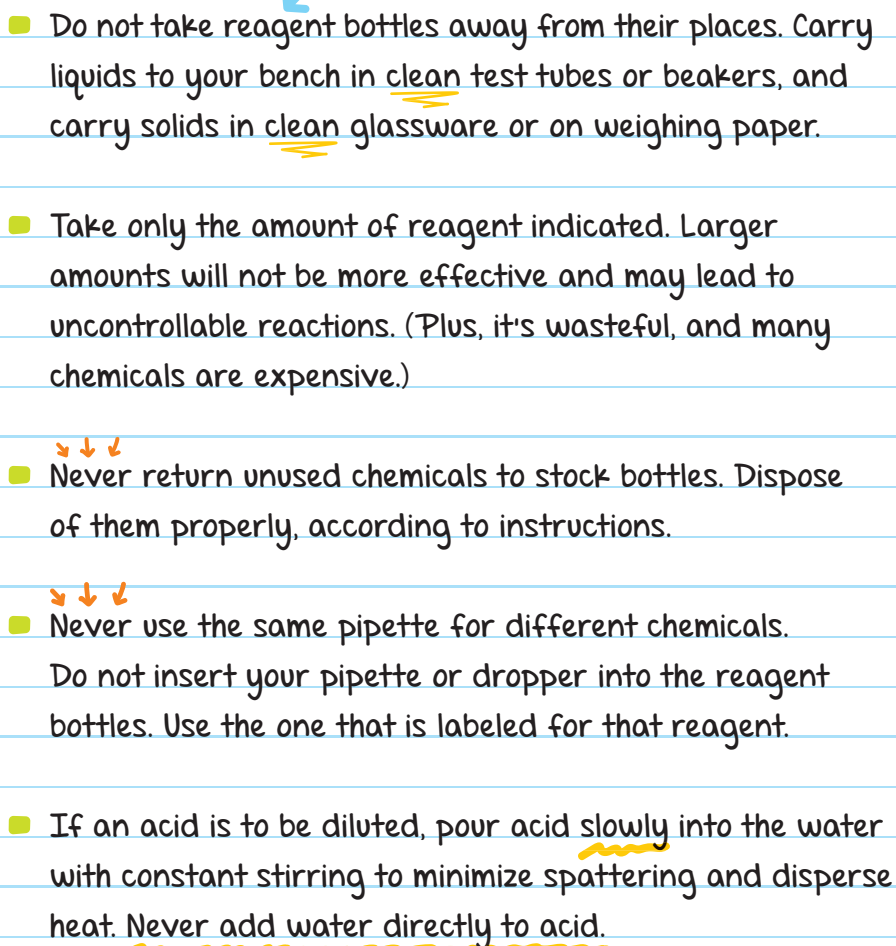 Do not take reagent bottles away from their places. Carry
liquids to your bench in clean test tubes or beakers, and
carry solids in clean glassware or on weighing paper.
Take only the amount of reagent indicated. Larger
amounts will not be more effective and may lead to
uncontrollable reactions. (Plus, it's wasteful, and many
chemicals are expensive.)
Never return unused chemicals to stock bottles. Dispose
of them properly, according to instructions.
Never use the same pipette for different chemicals.
Do not insert your pipette or dropper into the reagent
bottles. Use the one that is labeled for that reagent.
If an acid is to be diluted, pour acid slowly into the water
with constant stirring to minimize spattering and disperse
heat. Never add water directly to acid.